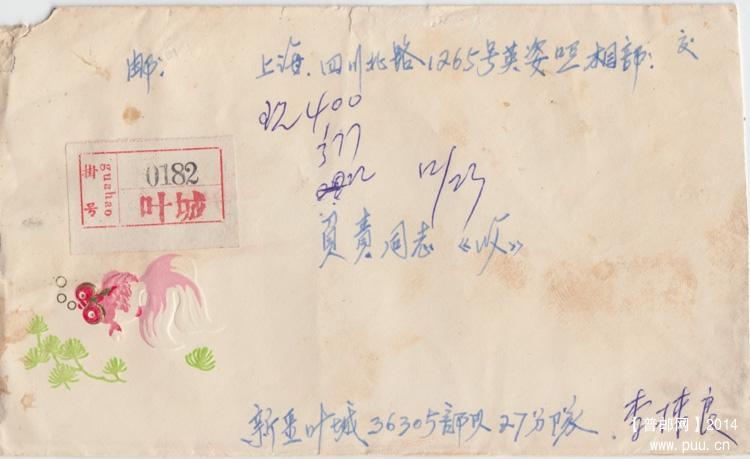 邮: 上海.四川北路1265号英姿照相部: 交
400
377
12/23
掛号 guahao 0182
叶城
負責同志《收》
新疆叶城36305部队27分队
李林良
【普邮网】2014
www.puu.cn